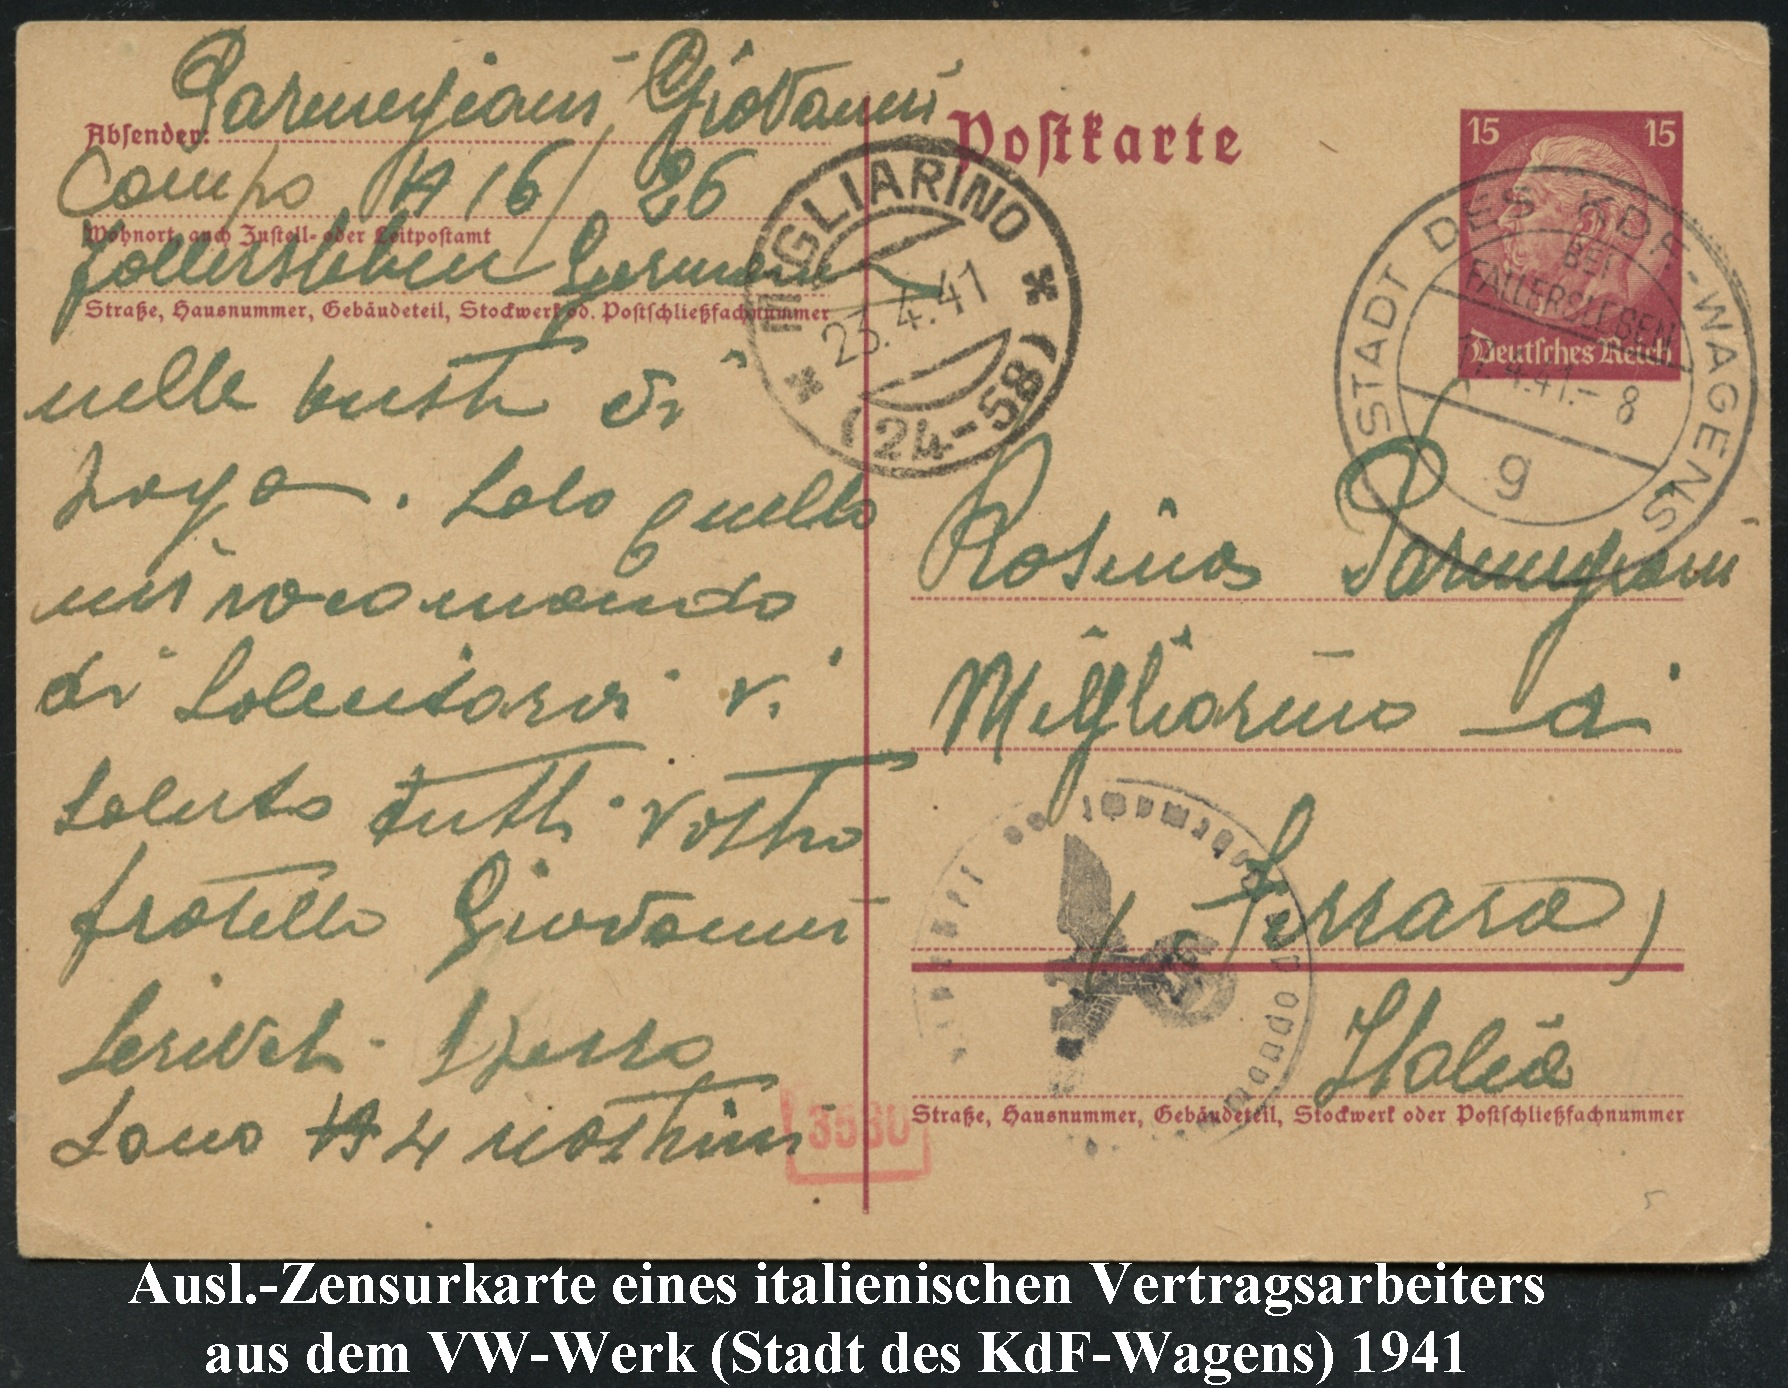 Parmegiani Giovanni
Absender:
Campo N 16 / 26
Wohnort, auch Zustell- oder Leitpostamt
Follersleben Germania
Straße, Hausnummer, Gebäudeteil, Stockwerk od. Postschließfachnummer
nelle busti di
paga. Solo quello
mi racomando
di
saluto tutti vostro
fratello Giovanni
Scriveti spesso
sono N 4
3530
Postkarte
MIGLIARINO
23.4.41
(24-58)
15 15
Deutsches Reich
STADT DES KDF-WAGENS
BEI
FALLERSLEBEN
17.4.41.- 8
g
Rosina Parmegiani
Migliarino di
(Ferrara)
Italia
Straße, Hausnummer, Gebäudeteil, Stockwerk oder Postschließfachnummer
Ausl.-Zensurkarte eines italienischen Vertragsarbeiters
aus dem VW-Werk (Stadt des KdF-Wagens) 1941